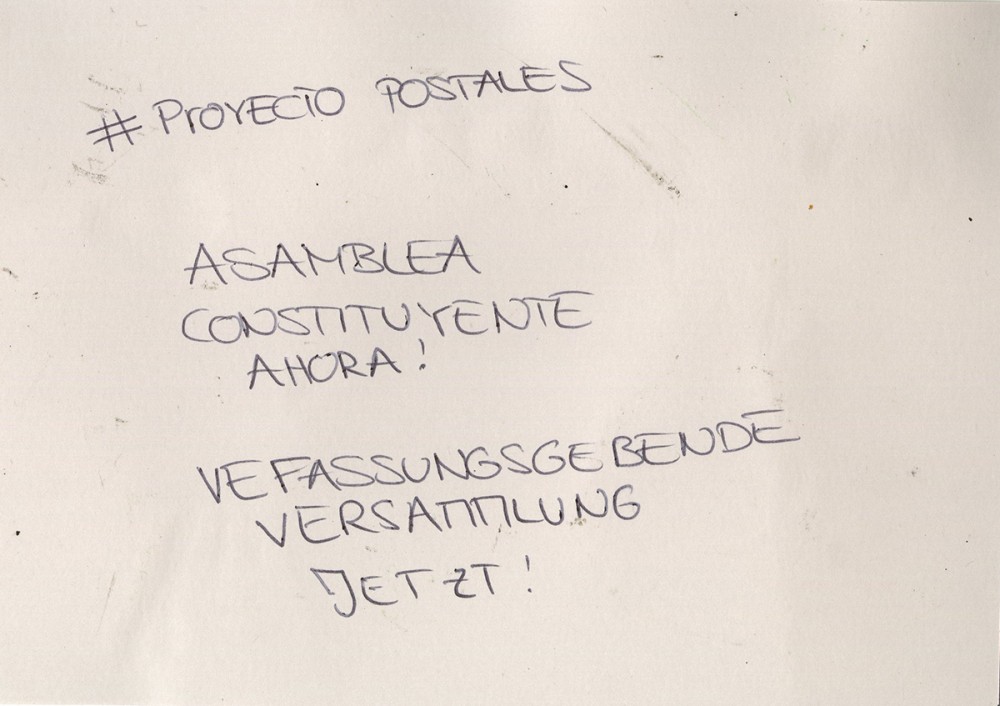 # PROYECTO POSTALES
ASAMBLEA
CONSTITUYENTE
AHORA!
VEFASSUNGSGEBENDE
VERSAMMLUNG
JETZT!